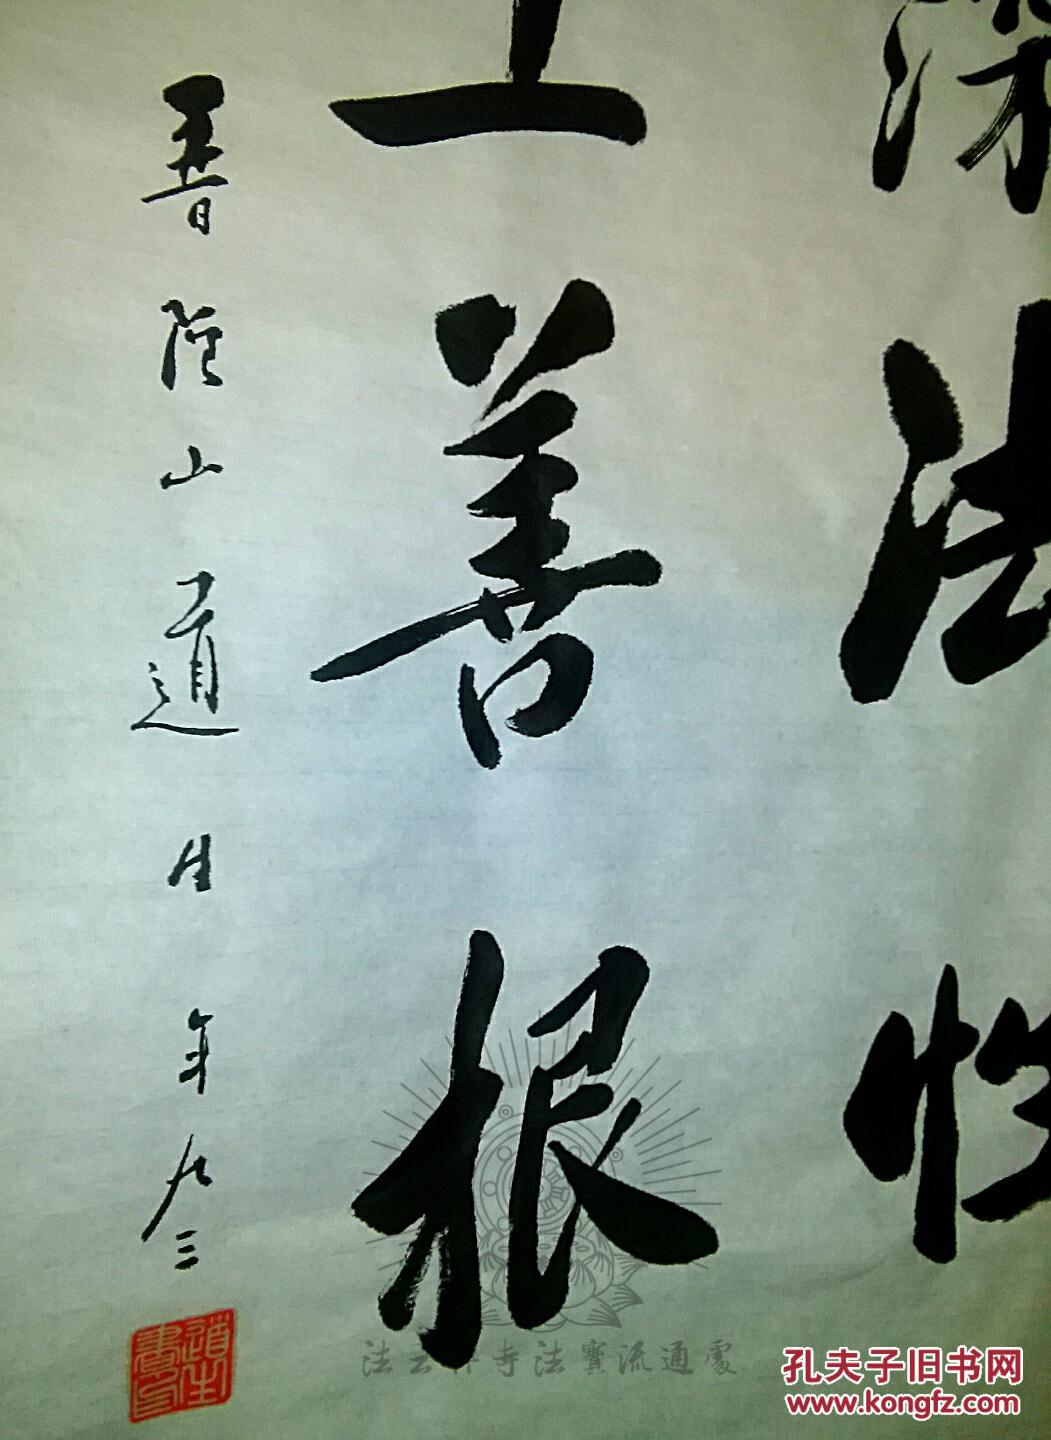 深法性
上善根
普陀山道生年九三
道生書印
法云禅寺法寶流通處
孔夫子旧书网
www.kongfz.com